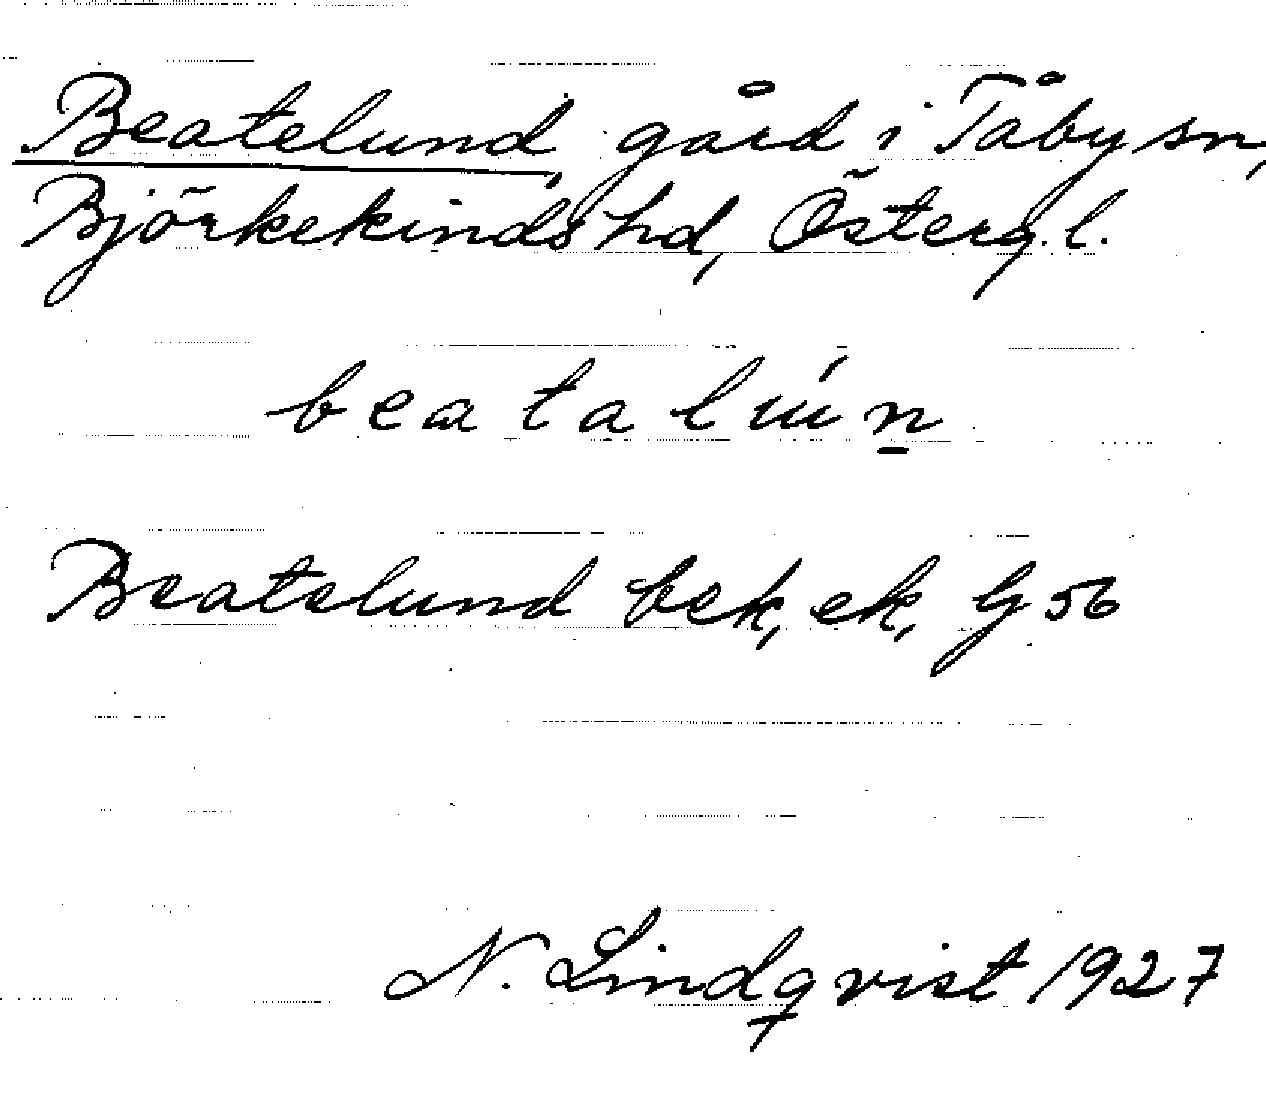 Beatelund, gård i Tåby sn,
Björkekinds hd, Österg. l.
beatalún
Beatelund bek, ek, G 56
N. Lindqvist 1927